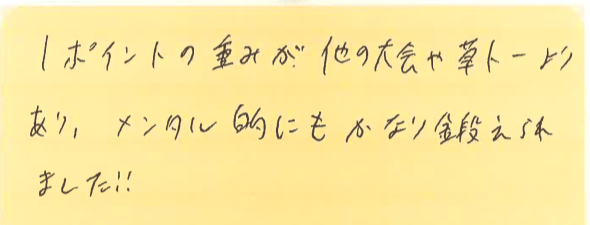 1ポイントの重みが他の大会や草トーより
あり、メンタル的にもかなり鍛えられ
ました!!